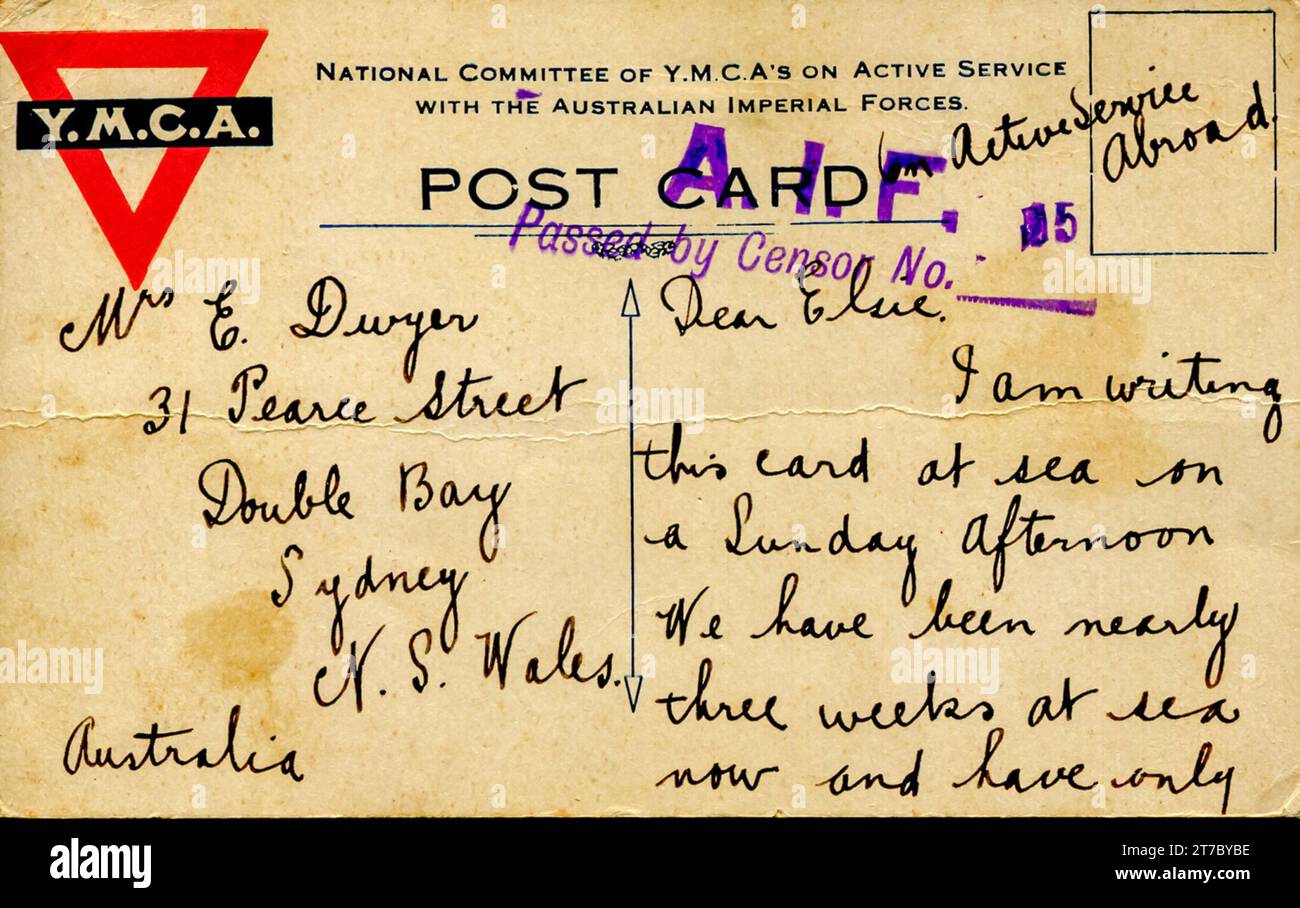 Y.M.C.A.
NATIONAL COMMITTEE OF Y.M.C.A'S ON ACTIVE SERVICE
WITH THE AUSTRALIAN IMPERIAL FORCES.
POST CARD
A. I. F.
Passed by Censor No.
on Active Service
Abroad.
Mrs E. Dwyer
31 Pearce Street
Double Bay
Sydney
N. S. Wales.
Australia
Dear Elsie.
I am writing
this card at sea on
a Sunday Afternoon
We have been nearly
three weeks at sea
now and have only
alamy
Image ID: 2T7BYBE
www.alamy.com